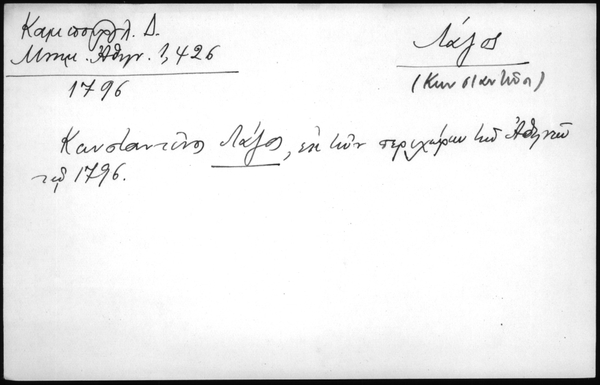 Καμπούρογλ. Δ.
Μνημ. Ἀθην. 1, 426
1796
Λάζος
(Κωνσταντῖνος)
Κωνσταντῖνος Λάζος, ἐκ τῶν περιχώρων τῶν Ἀθηνῶν
τῷ 1796.